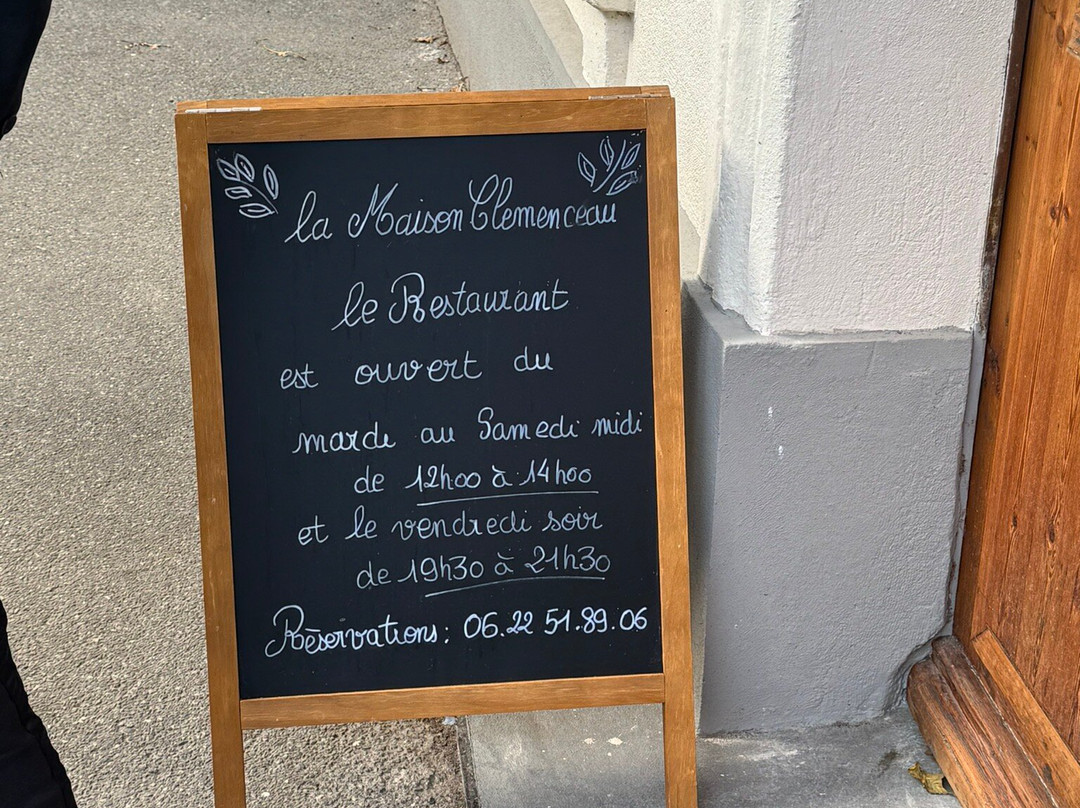 la Maison Clemenceau
le Restaurant
est ouvert du
mardi au Samedi midi
de 12h00 à 14h00
et le vendredi soir
de 19h30 à 21h30
Réservations : 06.22 51.89.06